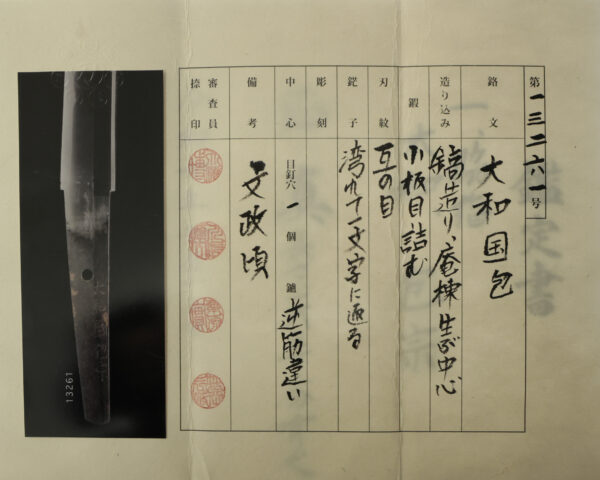 第一三二六一号
銘文 大和国包
造り込み 鎬造り、庵棟生ぶ中心
鍜 小板目詰む
刃紋 互の目
鋩子 湾れて一文字に返る
彫刻
中心 目釘穴 一個 鑢 逆筋違い
備考 文政頃
審査員捺印
13261